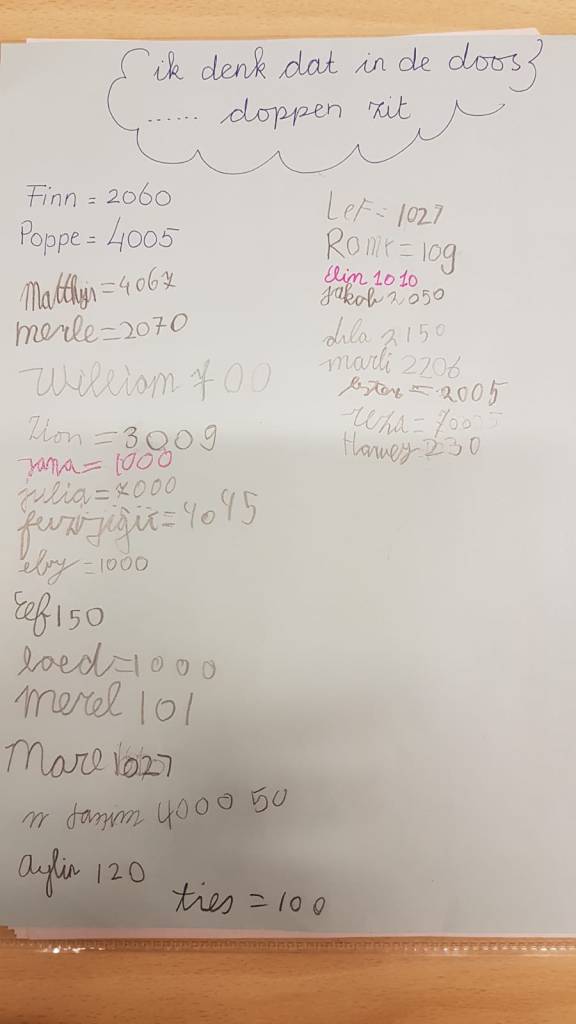 ik denk dat in de doos
...... doppen zit
Finn = 2060
Poppe = 4005
Matthijs = 4067
merle = 2070
William 700
Zion = 3009
jana = 1000
julia = 7000
= 4045
eloy = 1000
Eef 150
loed = 1000
merel 101
Mare 1027
tasnim 400050
Aylin 120
ties = 100
Lef = 1027
= 109
Elin 1010
jakob 2050
dila 2150
marli 2206
= 2005
Harvey 230